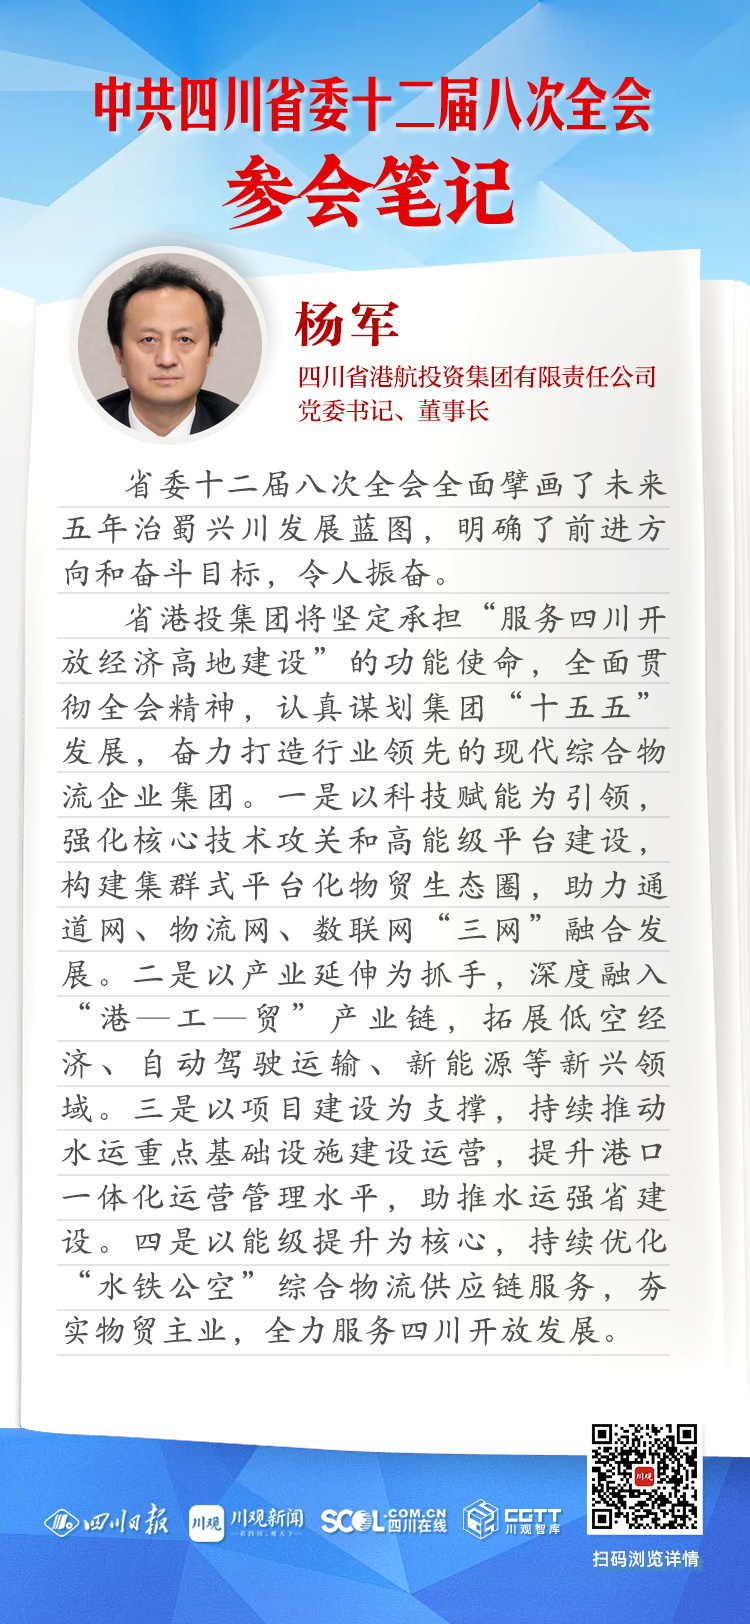 中共四川省委十二届八次全会
参会笔记
杨军
四川省港航投资集团有限责任公司
党委书记、董事长
省委十二届八次全会全面擘画了未来
五年治蜀兴川发展蓝图，明确了前进方
向和奋斗目标，令人振奋。
省港投集团将坚定承担“服务四川开
放经济高地建设”的功能使命，全面贯
彻全会精神，认真谋划集团“十五五”
发展，奋力打造行业领先的现代综合物
流企业集团。一是以科技赋能为引领，
强化核心技术攻关和高能级平台建设，
构建集群式平台化物贸生态圈，助力通
道网、物流网、数联网“三网”融合发
展。二是以产业延伸为抓手，深度融入
“港—工—贸”产业链，拓展低空经
济、自动驾驶运输、新能源等新兴领
域。三是以项目建设为支撑，持续推动
水运重点基础设施建设运营，提升港口
一体化运营管理水平，助推水运强省建
设。四是以能级提升为核心，持续优化
“水铁公空”综合物流供应链服务，夯
实物贸主业，全力服务四川开放发展。
川观
四川日报
川观 川观新闻
SCOL.COM.CN
四川在线
CGTT
川观智库
扫码浏览详情